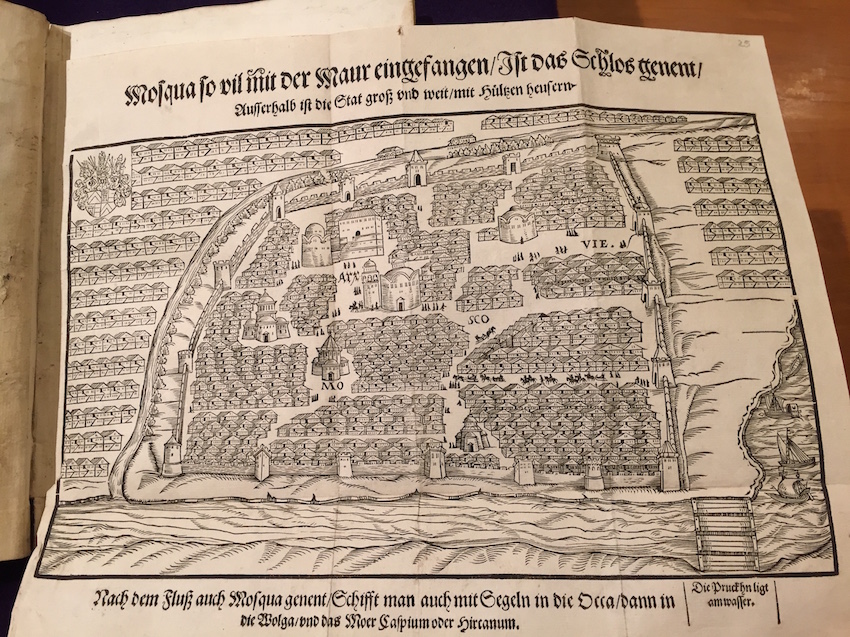 25
Mosqua so vil mit der Maur eingefangen/Ist das Schlos genent/
Ausserhalb ist die Stat groß vnd weit/mit Hültzen heusern
VIE.
ARX
SCO
MO
Nach dem Fluß auch Mosqua genent/Schifft man auch mit Segeln in die Occa/dann in
die Wolga/vnd das Moer Caspium oder Hircanum.
Die Pruckhn ligt
am wasser.